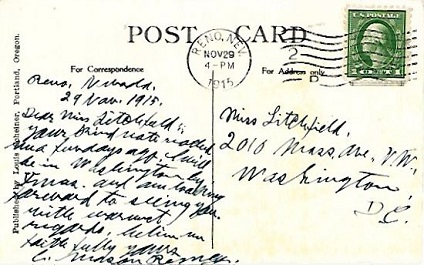 POST CARD
RENO, NEV.
NOV 29
4-PM
1915
2
P
U.S. POSTAGE
For Correspondence
For Address only
Published by Louis Scheiner, Portland, Oregon.
Reno, Nevada.
29 Nov. 1915.
Dear Miss Litchfield:
Your kind note reached
me Sundays ago. I will
be in Washington by
Xmas. and am looking
forward to seeing you.
With warmest
regards, believe me
faithfully yours
C.
Miss Litchfield,
2010 Mass. Ave. N.W.
Washington,
D.C.